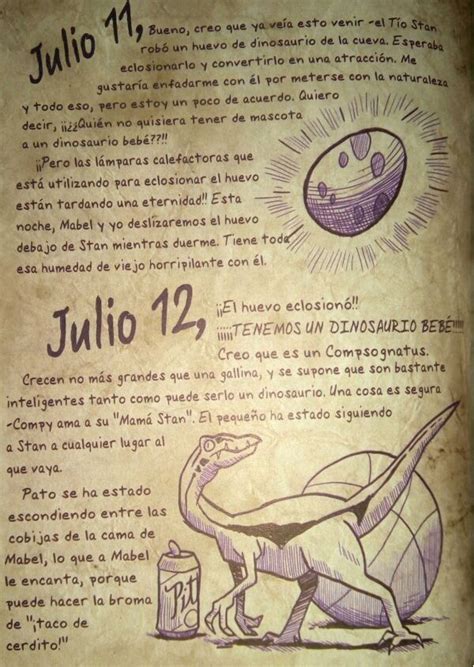 Julio 11, Bueno, creo que ya veía esto venir -el Tío Stan
robó un huevo de dinosaurio de la cueva. Esperaba
eclosionarlo y convertirlo en una atracción. Me
gustaría enfadarme con él por meterse con la naturaleza
y todo eso, pero estoy un poco de acuerdo. Quiero
decir, ¡¡¿¿Quién no quisiera tener de mascota
a un dinosaurio bebé??!!
¡¡Pero las lámparas calefactoras que
está utilizando para eclosionar el huevo
están tardando una eternidad!! Esta
noche, Mabel y yo deslizaremos el huevo
debajo de Stan mientras duerme. Tiene toda
esa humedad de viejo horripilante con él.
Julio 12, ¡¡El huevo eclosionó!!
¡¡¡¡¡TENEMOS UN DINOSAURIO BEBÉ!!!!!
Creo que es un Compsognatus.
Crecen no más grandes que una gallina, y se supone que son bastante
inteligentes tanto como puede serlo un dinosaurio. Una cosa es segura
-Compy ama a su "Mamá Stan". El pequeño ha estado siguiendo
a Stan a cualquier lugar al
que vaya.
Pato se ha estado
escondiendo entre las
cobijas de la cama de
Mabel, lo que a Mabel
le encanta, porque
puede hacer la broma
de "¡taco de
cerdito!"
Pitt